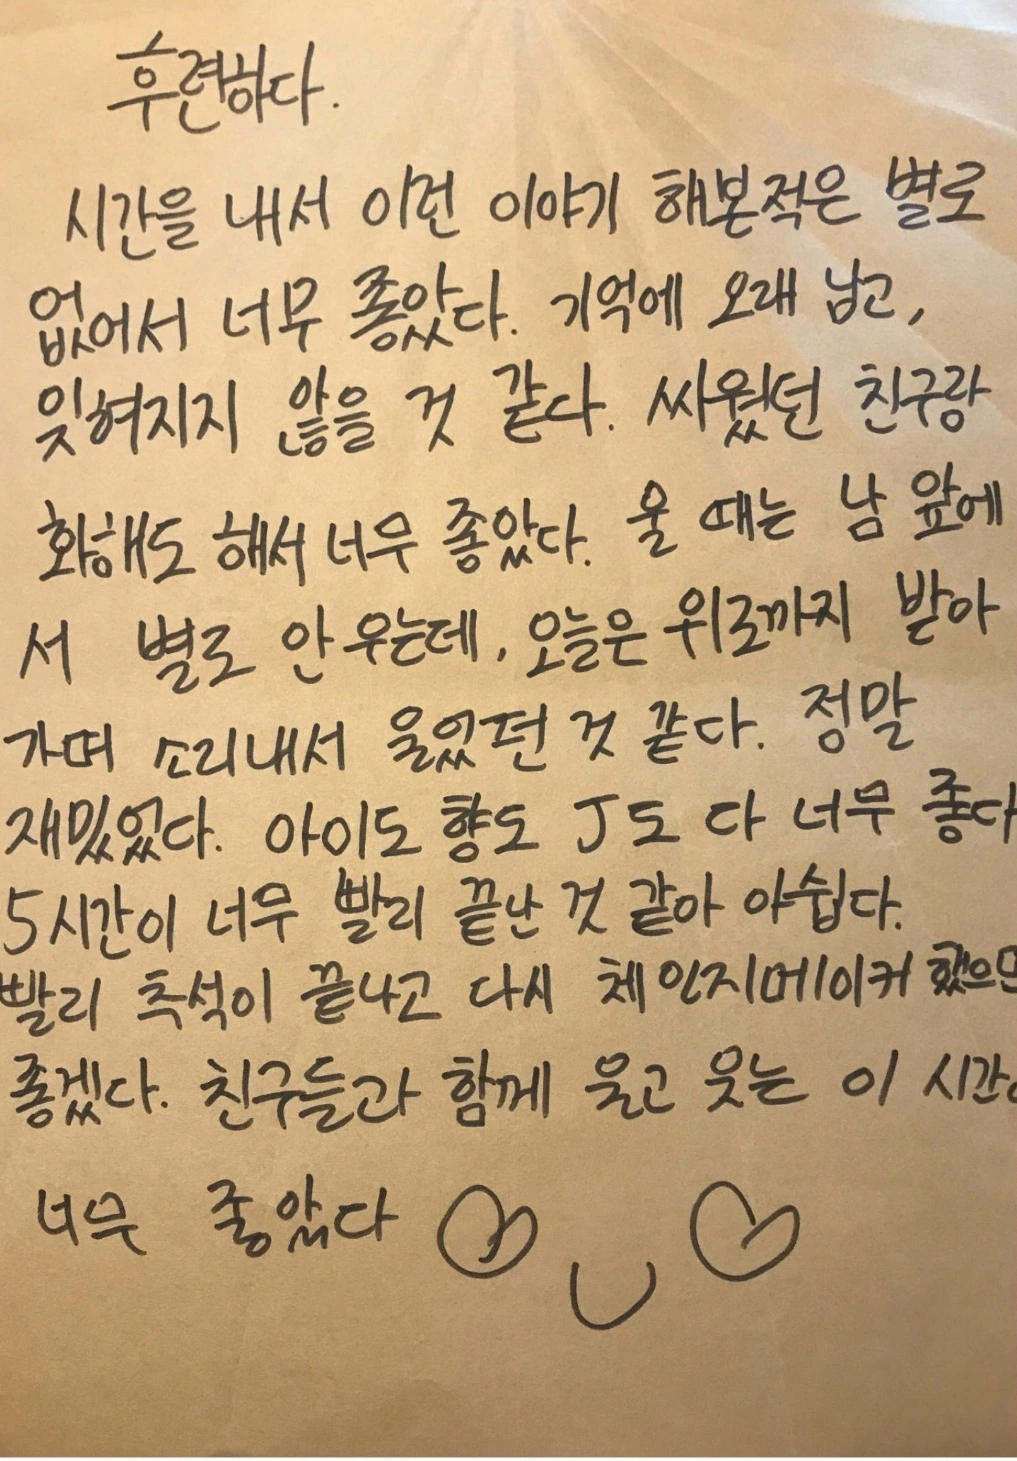 후련하다.
시간을 내서 이런 이야기 해본적은 별로
없어서 너무 좋았다. 기억에 오래 남고,
잊혀지지 않을 것 같다. 싸웠던 친구랑
화해도 해서 너무 좋았다. 울 때는 남 앞에
서 별로 안 우는데, 오늘은 위로까지 받아
가며 소리내서 울었던 것 같다. 정말
재밌었다. 아이도 향도 J도 다 너무 좋다
5시간이 너무 빨리 끝난 것 같아 아쉽다.
빨리 추석이 끝나고 다시 체인지메이커 했으면
좋겠다. 친구들과 함께 울고 웃는 이 시간이
너무 좋았다